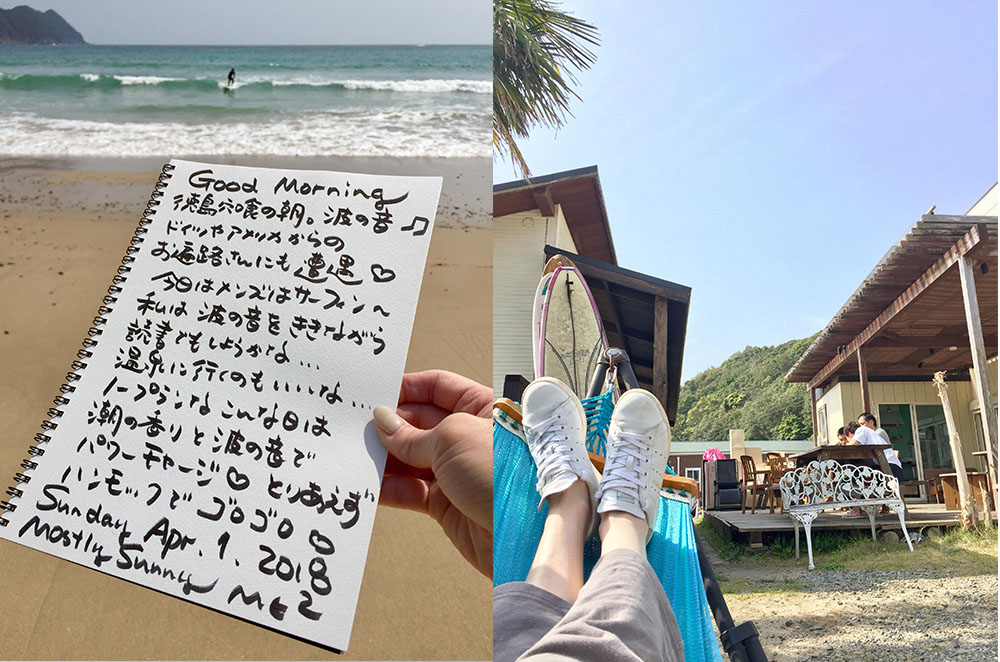 Good Morning
徳島宍喰の朝。波の音♫
ドイツやアメリカからの
お遍路さんにも遭遇♡
今日はメンズはサーフィンへ
私は波の音をききながら
読書でもしようかな...
温泉に行くのもいいな...
ノープランなこんな日は
潮の香りと波の音で
パワーチャージ♡とりあえず
ハンモックでゴロゴロ♡
Sunday Apr. 1. 2018
Mostly Sunny